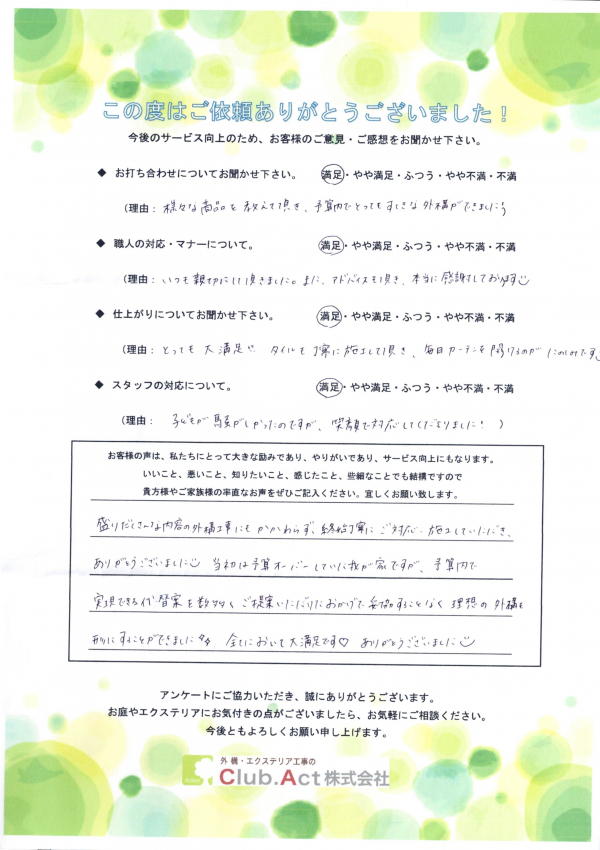 この度はご依頼ありがとうございました！
今後のサービス向上のため、お客様のご意見・ご感想をお聞かせ下さい。
◆ お打ち合わせについてお聞かせ下さい。 満足・やや満足・ふつう・やや不満・不満
(理由： 様々な商品を教えて頂き、予算内でとってもすてきな外構ができました！)
◆ 職人の対応・マナーについて。 満足・やや満足・ふつう・やや不満・不満
(理由： いつも親切にして頂きました。また、アドバイスも頂き、本当に感謝しております
◆ 仕上がりについてお聞かせ下さい。 満足・やや満足・ふつう・やや不満・不満
(理由： とっても大満足 タイルも丁寧に施工して頂き、毎日カーテンを開けるのが たのしみです
◆ スタッフの対応について。 満足・やや満足・ふつう・やや不満・不満
(理由： 子どもが騒がしかったのですが、笑顔で対応してくださりました！)
お客様の声は、私たちにとって大きな励みであり、やりがいであり、サービス向上にもなります。
いいこと、悪いこと、知りたいこと、感じたこと、些細なことでも結構ですので
貴方様やご家族様の率直なお声をぜひご記入ください。宜しくお願い致します。
盛りだくさんな内容の外構工事にもかかわらず、終始丁寧にご対応、施工していただき、
ありがとうございました 当初は予算オーバーしていた我が家ですが、予算内で
実現できる代替案を数多くご提案いただいたおかげで妥協することなく理想の外構を
形にすることができました 全てにおいて大満足です♡ ありがとうございました
アンケートにご協力いただき、誠にありがとうございます。
お庭やエクステリアにお気付きの点がございましたら、お気軽にご相談ください。
今後ともよろしくお願い申し上げます。
外構・エクステリア工事の
Club.Act株式会社